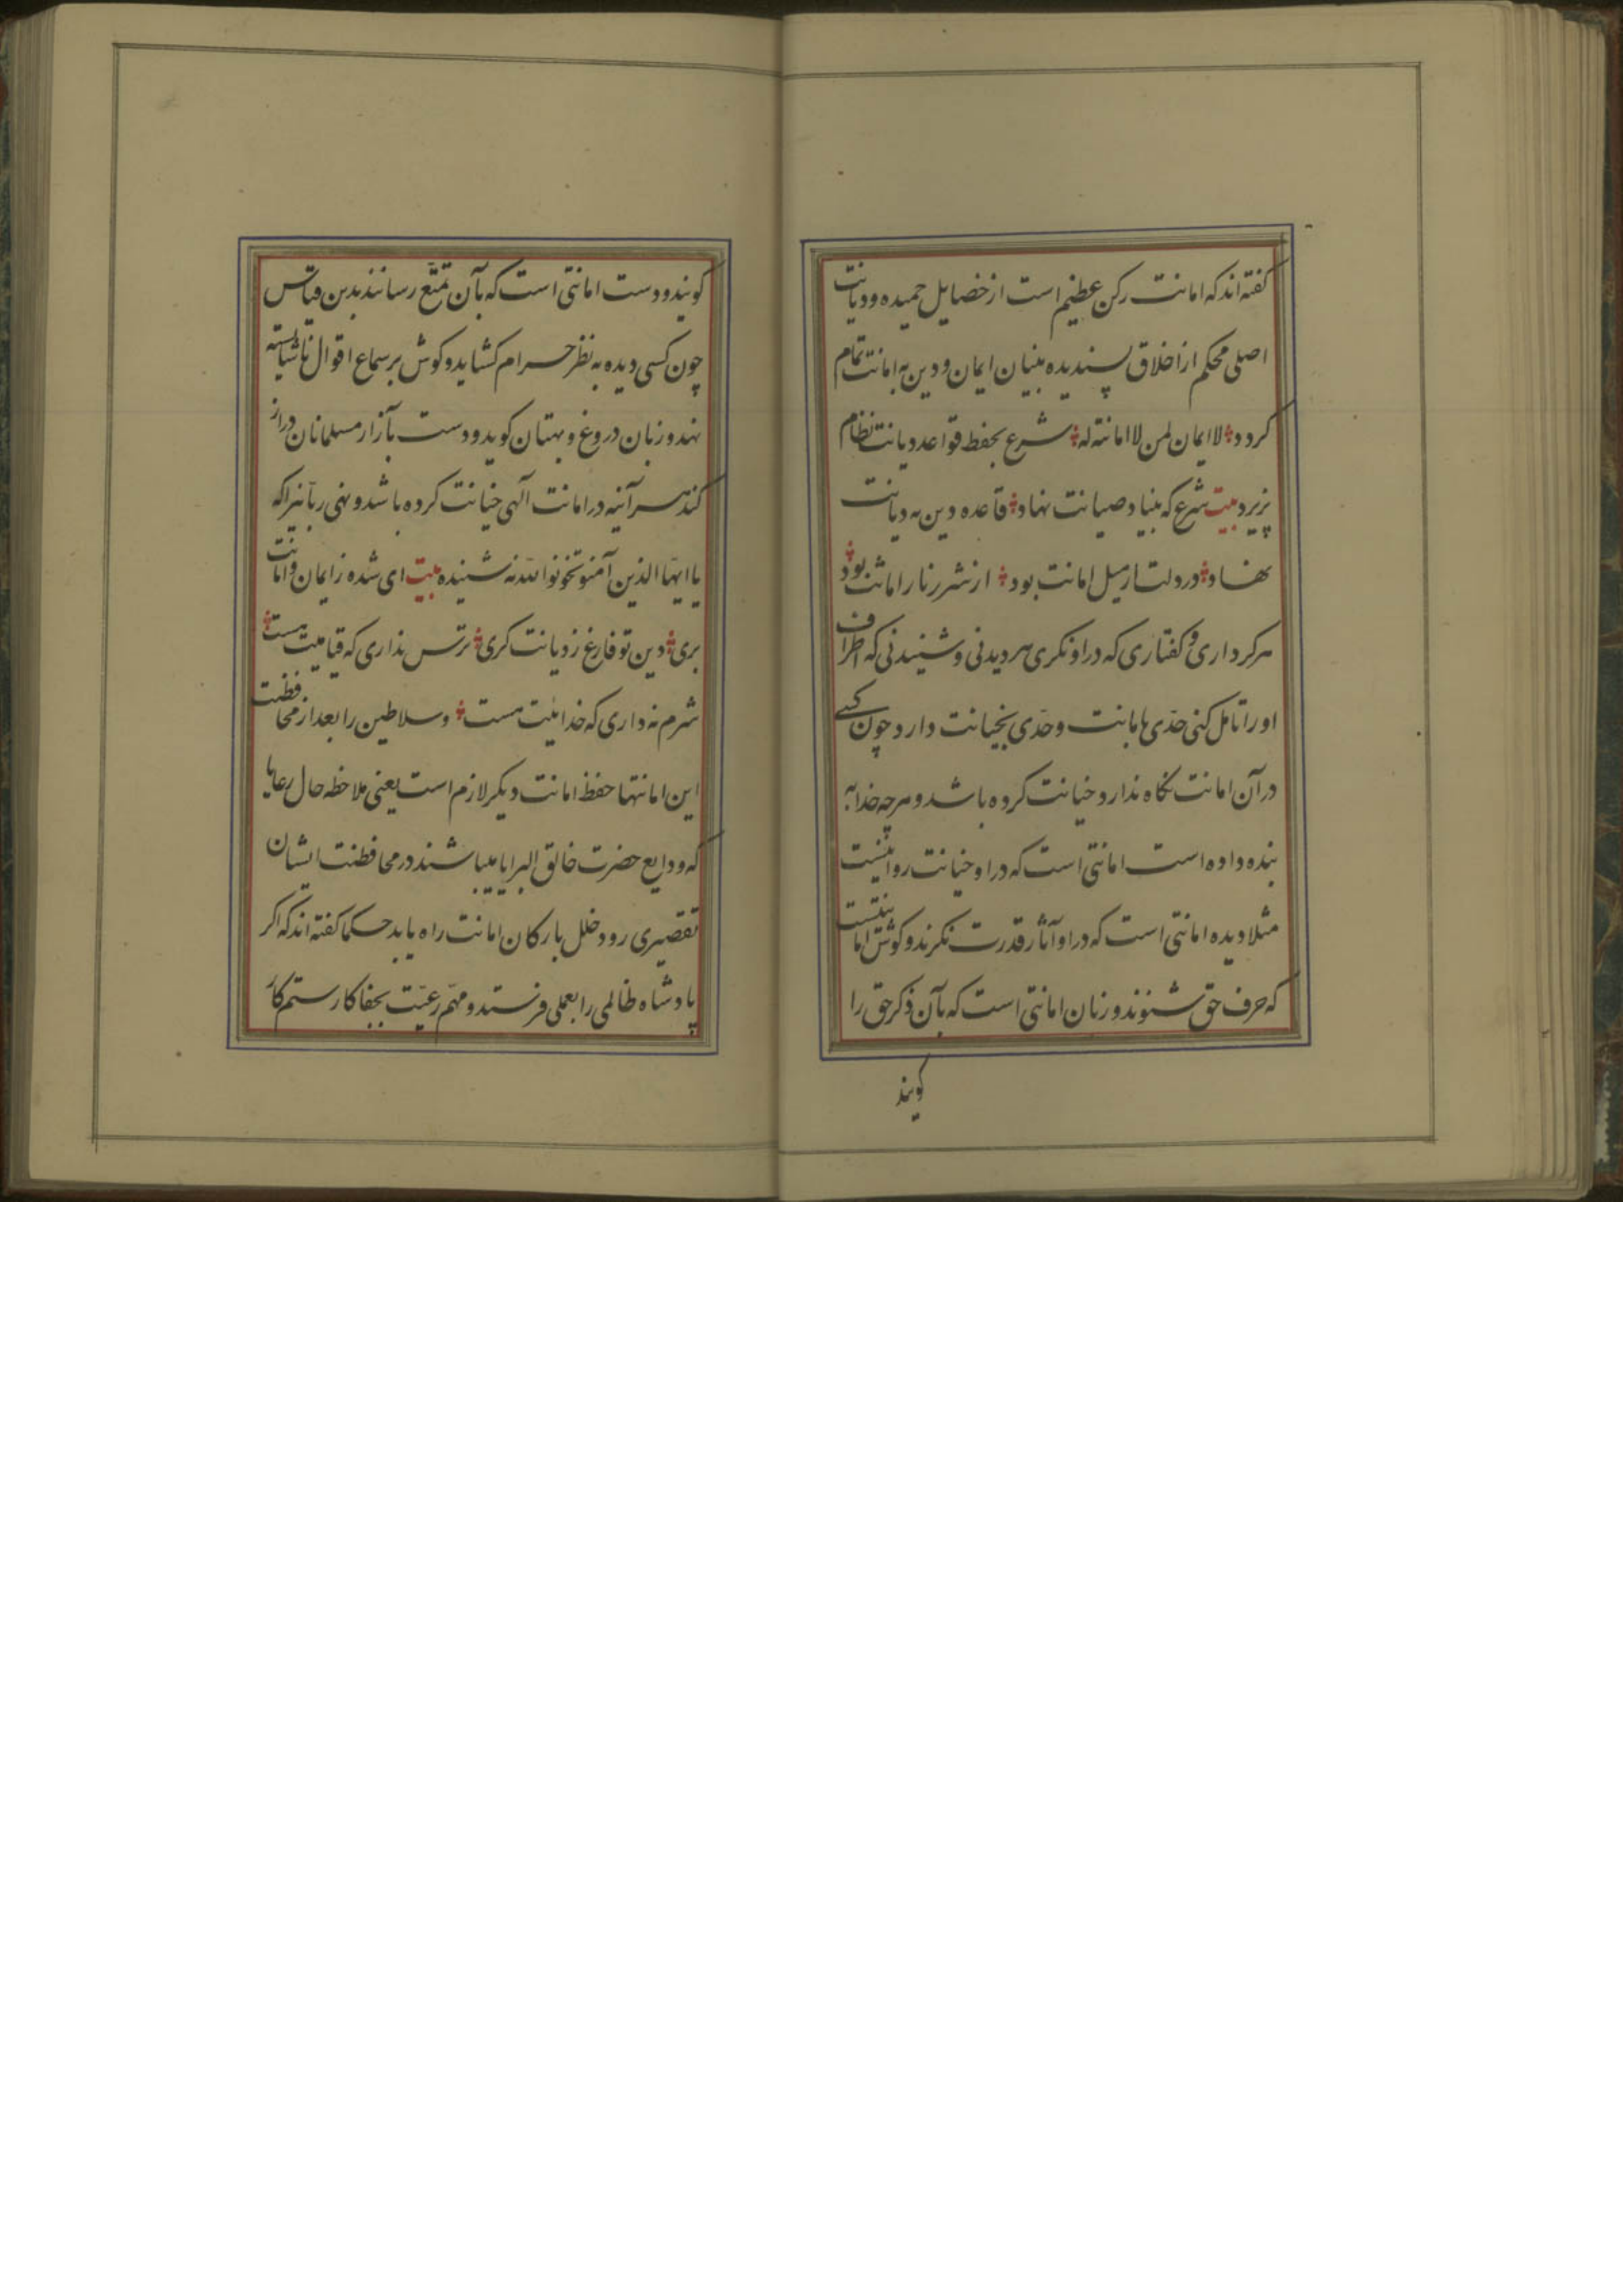 کفته‌اند که امانت رکن عظیم است از خصایل حمیده و دیانت
اصلی محکم از اخلاق پسندیده بنیان ایمان و دین به امانت تمام
کردد لا ایمان لمن لا امانته له شرع بحفظ قواعد دیانت نظام
پزیرد بیت شرع که بنیاد صیانت نهاد قاعده دین به دیانت
نهاد در دلت ار میل امانت بود از شرر نار امانت بود
هر کرداری و کفتاری که در او نکری هر دیدنی و شنیدنی که اطراف
او را تامل کنی حدّی بامانت و حدّی بخیانت دارد چون کسی
در آن امانت نکاه ندارد خیانت کرده باشد و هر چه خدا به
بنده داده است امانتی است که در او خیانت روا نیست
مثلا دیده امانتی است که در او آثار قدرت نکرند و کوش امانتیست
که حرف حق شنوند و زبان امانتی است که بآن ذکر حق را
کویند
کویند و دست امانتی است که بآن تمتّع رسانند بدین قیاس
چون کسی دیده به نظر حرام کشاید و کوش بر سماع اقوال ناشایسته
نهد و زبان دروغ و بهتان کوید و دست بآزار مسلمانان دراز
کند هر آینه در امانت آلهی خیانت کرده باشد و نهی ربّانیرا که
یا ایهّا الذین آمنو تخونوا اللّه نه شنیده بیت ای شده ز ایمان و امانت
بری دین تو فارغ ز دیانت کری ترس نداری که قیامت هست
شرم نه داری که خدائیت هست و سلاطین را بعد از محافظت
این امانتها حفظ امانت دیکر لازم است یعنی ملاحظه حال رعایا
که ودایع حضرت خالق البرایا میباشند در محافظت ایشان
تقصیری رود خلل بارکان امانت راه یابد حکما کفته‌اند که اکر
پادشاه ظالمی را بعملی فرستد و مهّم رعیّت بجفا کار ستم کار